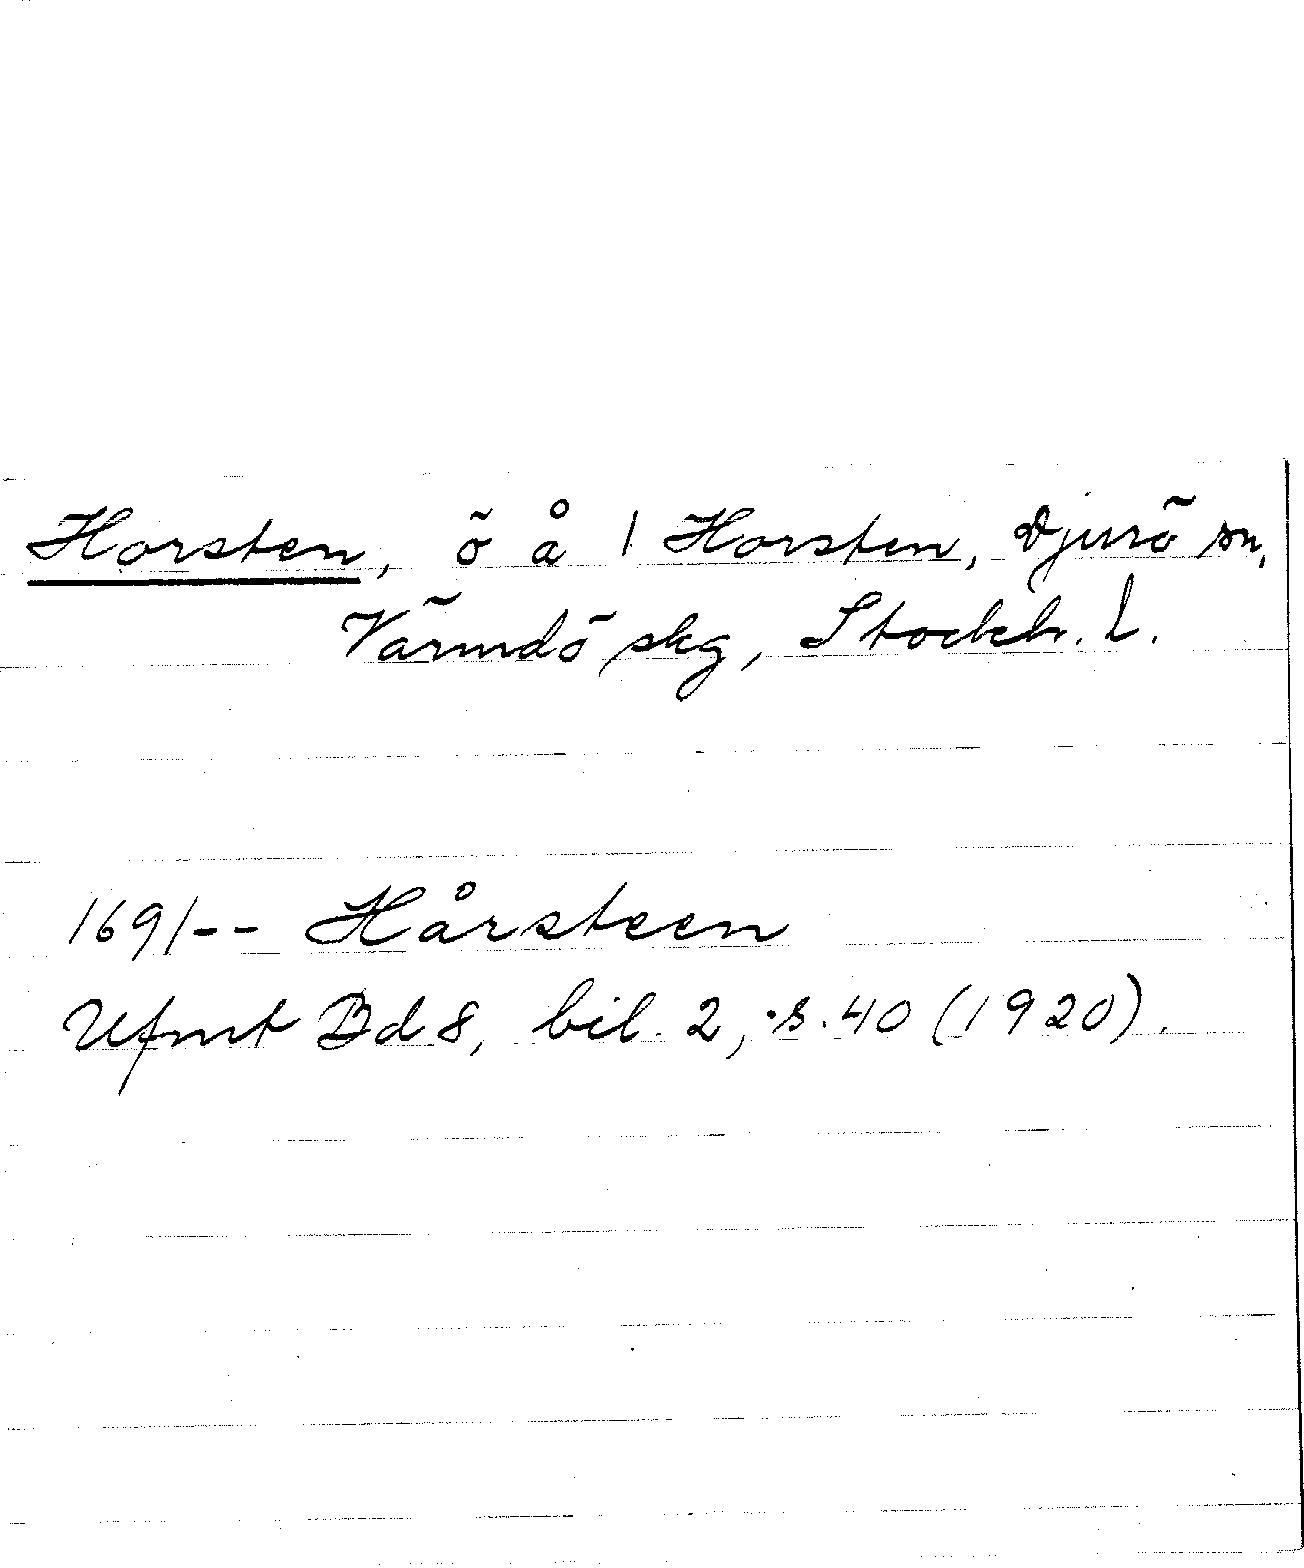 Horsten, ö å 1 Horsten, Djurö sn,
Värmdö skg, Stockh. l.
1691-- Hårsteen
Ufmt Bd 8, bil. 2, s. 40 (1920).